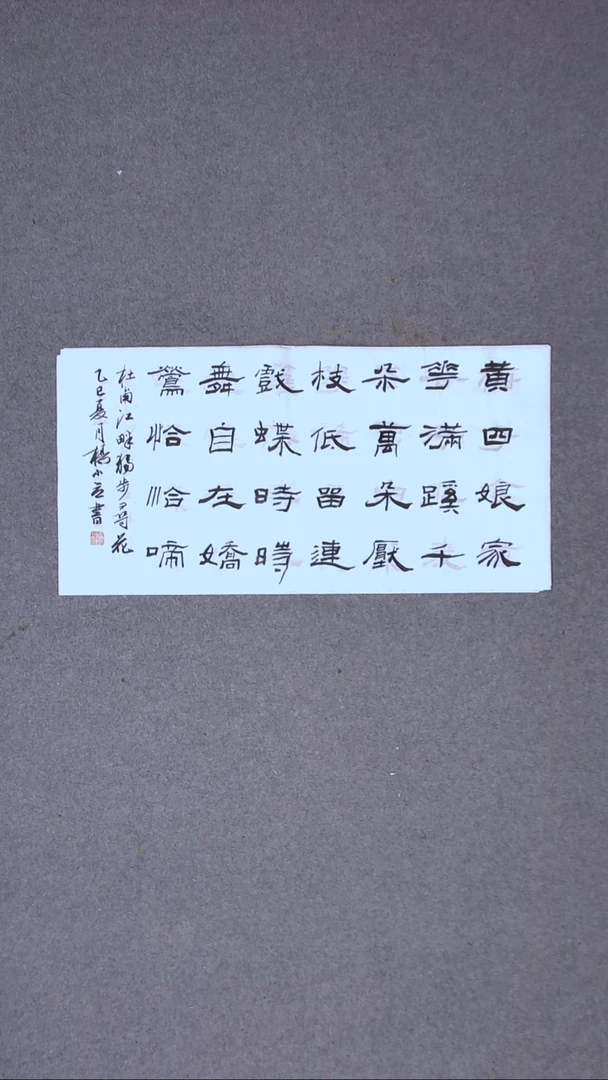 黃四娘家
華滿蹊千
朵萬朵壓
枝低留連
戲蝶時時
舞自在嬌
鶯恰恰啼
杜甫江畔獨步尋花
乙巳夏月楊小書